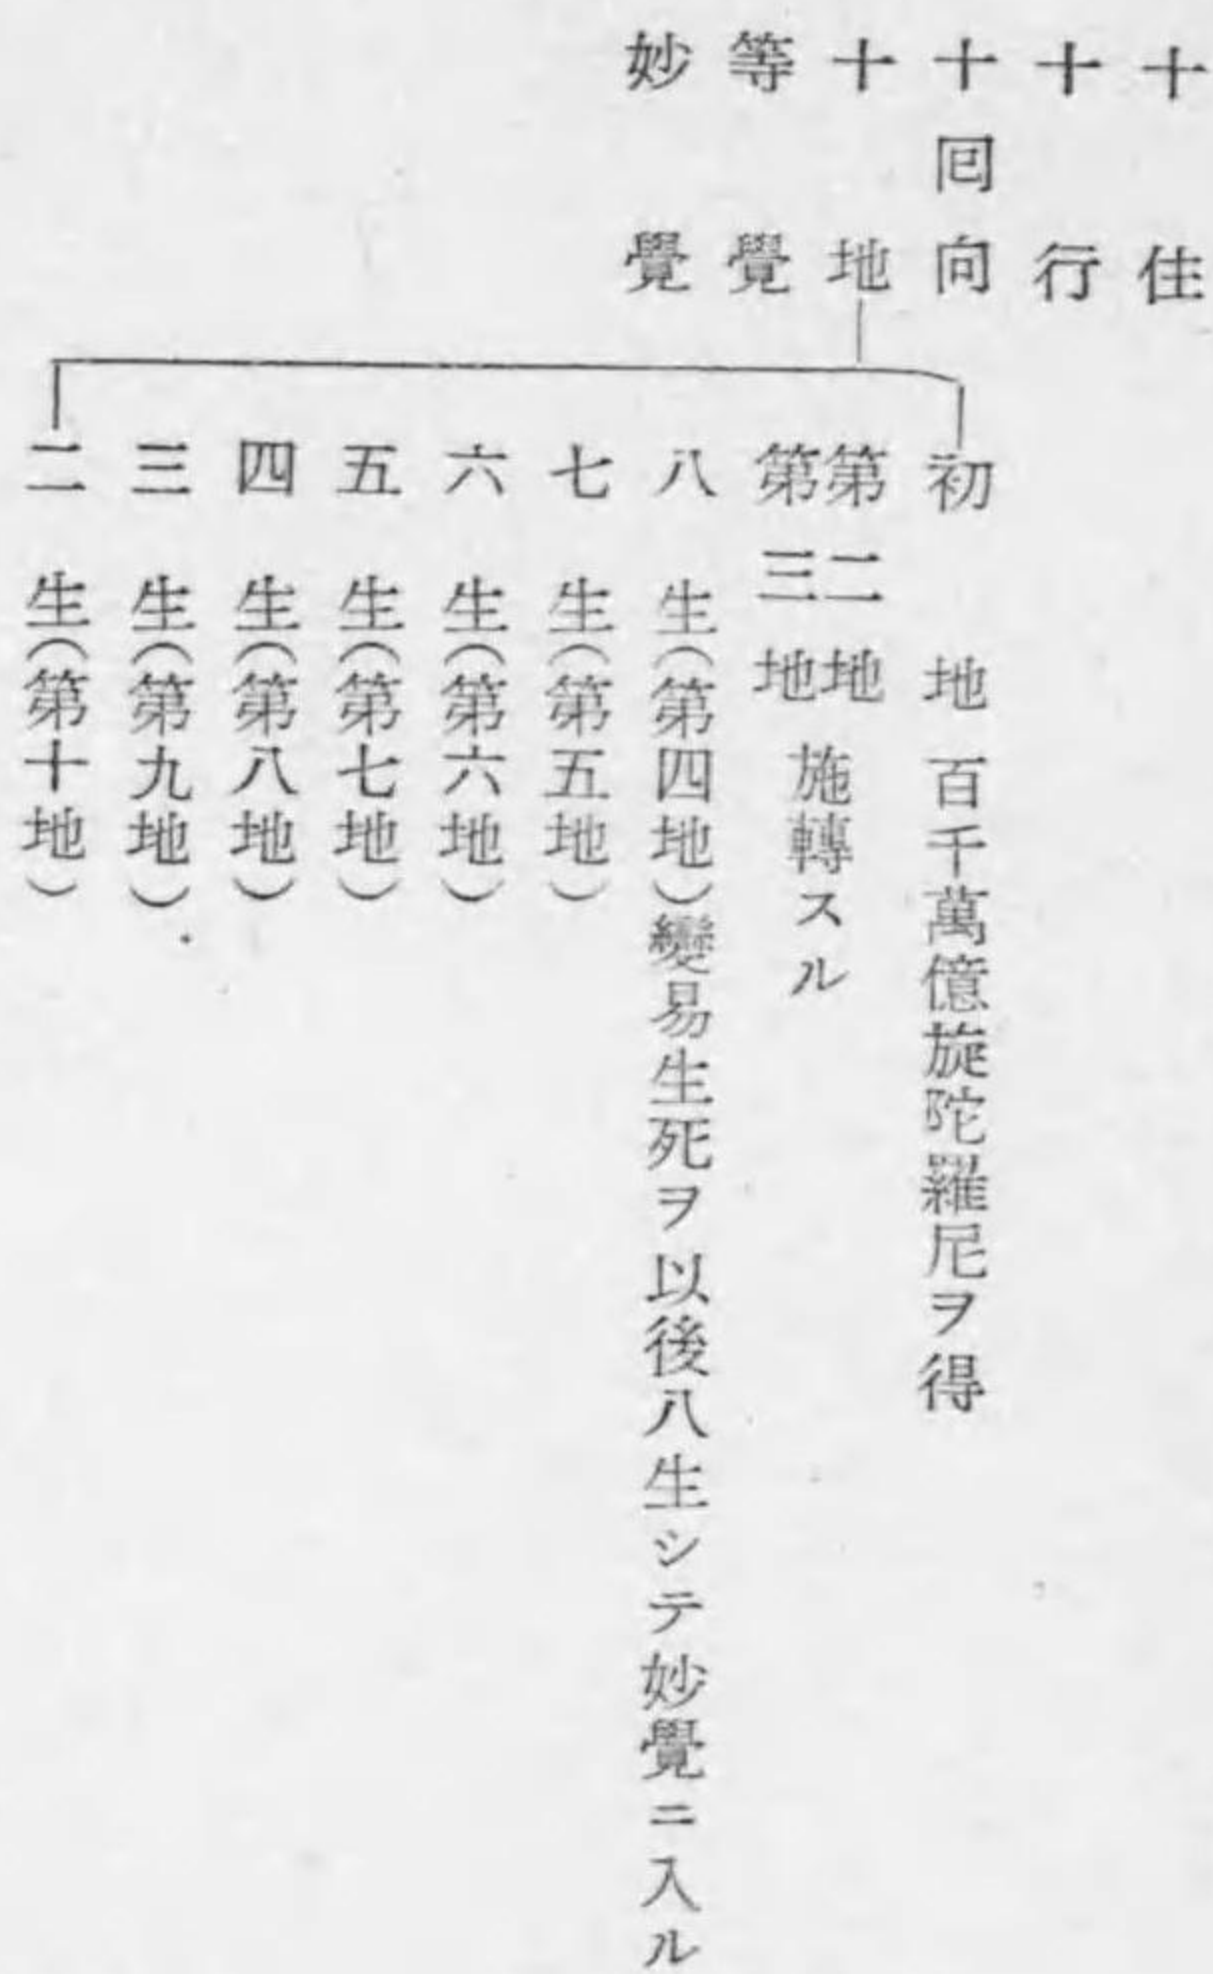 十住
十行
十回向
十地
等覺
妙覺
初地 百千萬億旋陀羅尼ヲ得
第二地
第三地
施轉スル
八生(第四地)變易生死ヲ以後八生シテ妙覺ニ入ル
七生(第五地)
六生(第六地)
五生(第七地)
四生(第八地)
三生(第九地)
二生(第十地)